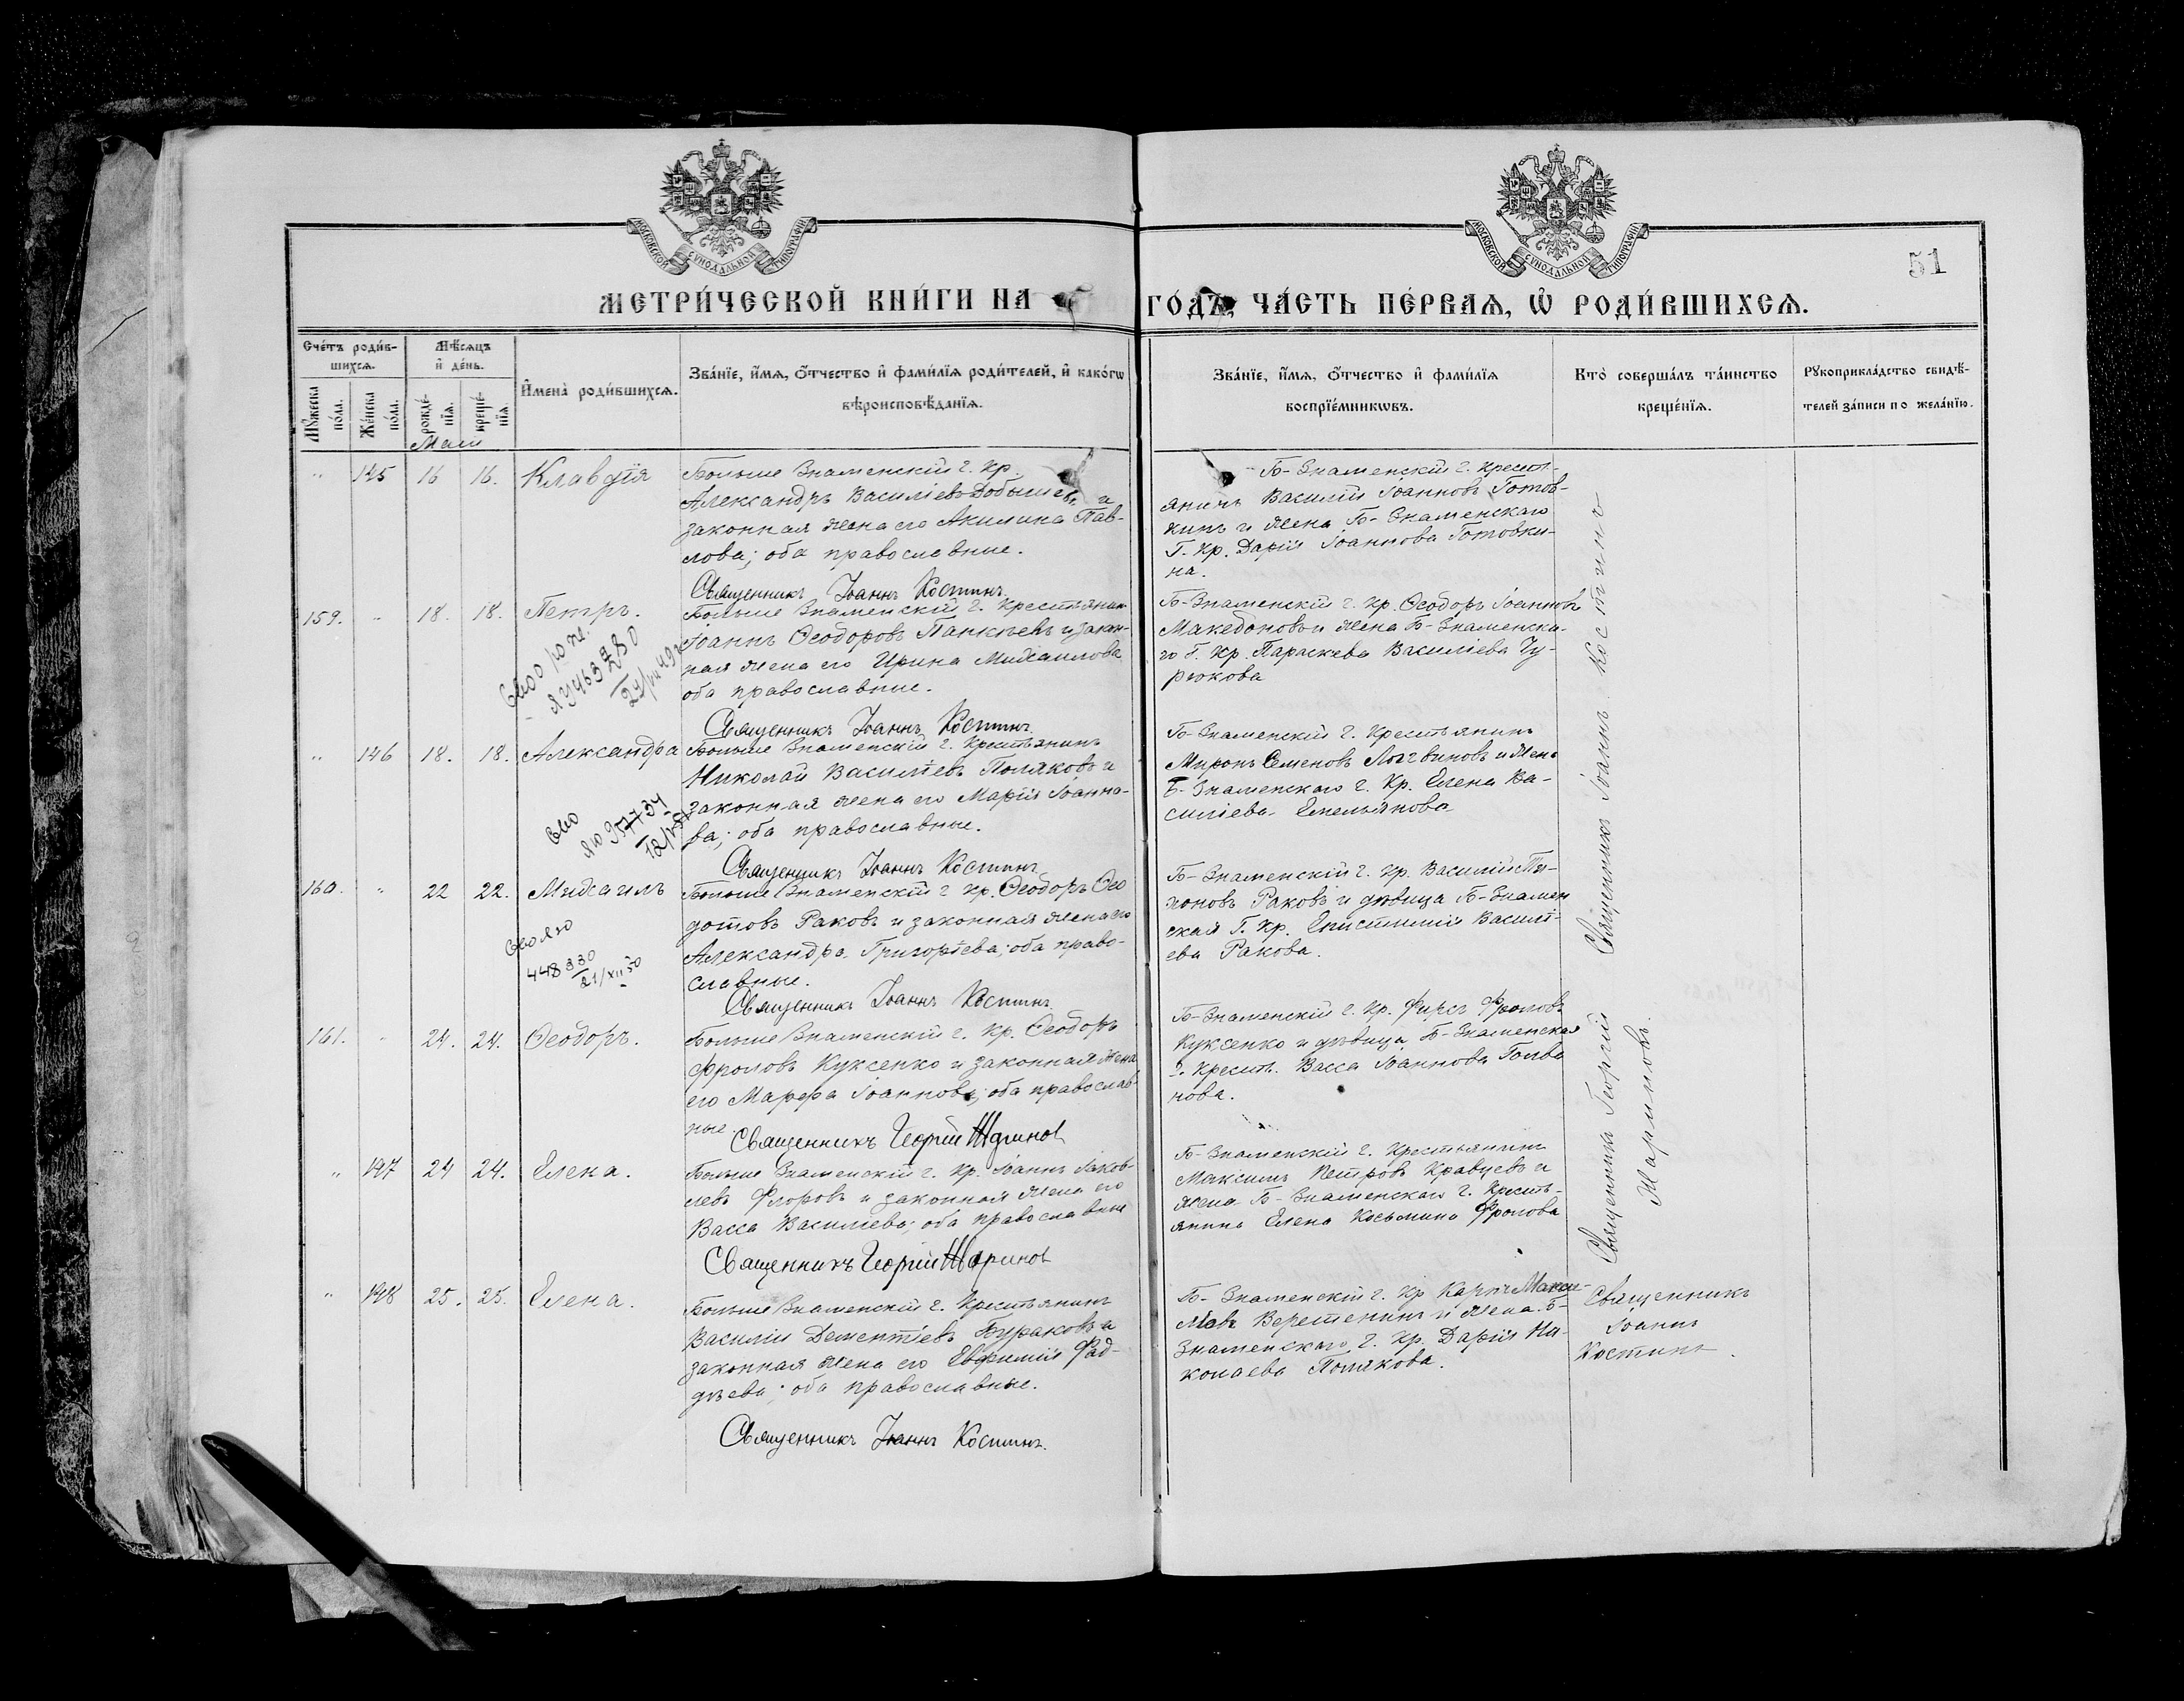 МОСКОВСКОЙ СѴНОДАЛЬНОЙ ТИПОГРАФІИ
МОСКОВСКОЙ СѴНОДАЛЬНОЙ ТИПОГРАФІИ
51
МЕТРИ́ЧЕСКОЙ КНИ́ГИ НА ГО́ДЪ, ЧА́СТЬ ПЕ́РВАЯ, Ѡ҆ РОДИ́ВШИХСЯ.
Сче́тъ роди́в-
шихся.
Мѣ́сяцъ
и҆ де́нь.
Мꙋ́жеска по́ла.
Же́нска по́ла.
рожде́-
нїя.
креще́-
нїя.
И҆мена̀ роди́вшихся.
Зва́нїе, и҆́мя, ѻ҆́тчество и҆ фами́лїя роди́телей, и҆ како́гѡ
вѣроисповѣ́данїя.
Зва́нїе, и҆́мя, ѻ҆́тчество и҆ фами́лїя
воспрїе́мникѡвъ.
Кто̀ соверша́лъ та́инство
креще́нїя.
Рꙋкоприкла́дство свидѣ́-
телей за́писи по жела́нїю.
Май
" 145 16 16. Клавдія
Больше Знаменскій г. кр.
Александръ Василіевъ Добышевъ и
законная жена его Акилина Пав-
лова; оба православные.
Священникъ Іоаннъ Костинъ.
Б-Знаменскій г. кресть-
янинъ Василій Іоанновъ Готов-
кинъ и жена Б-Знаменскаго
г. кр. Дарія Іоаннова Готовки-
на.
159. " 18. 18. Петръ.
24/VII 49
Больше Знаменскій г. крестьянин
Іоаннъ Ѳеодоровъ Панкѣевъ и закон-
ная жена его Ирина Михаилова
оба православные.
Священникъ Іоаннъ Костинъ.
Б-Знаменскій г. кр. Ѳеодоръ Іоанновъ
Македоновъ и жена Б-Знаменска-
го г. кр. Параскева Василіева Чу-
рюкова
" 146 18. 18. Александра
Больше Знаменскій г. крестьянинъ
Николай Василіевъ Поляковъ и
законная жена его Марія Іоанно-
ва; оба православные.
Священникъ Іоаннъ Костинъ
Б-Знаменскій г. крестьянинъ
Миронъ Семеновъ Логвиновъ и жена
Б-Знаменскаго г. кр. Елена Ва-
силіева Емельянова
160. " 22 22. Михаилъ
448330
21/XII 50
Больше Знаменскій г. кр. Ѳеодоръ Ѳео
дотовъ Раковъ и законная жена его
Александра Григоріева; оба право-
славные.
Священникъ Іоаннъ Костинъ
Б-Знаменскій г. кр. Василій
Раковъ и дѣвица Б-Знамен
ская г. кр. Епистимія Василі-
ева Ракова.
161. " 24. 24. Ѳеодоръ.
Больше Знаменскій г. кр. Ѳеодоръ
Фроловъ Куксенко и законная жена
его Марфа Іоаннова; оба православ
ные.
Священникъ Георгій Жариновъ
Б-Знаменскій г. кр. Фирсъ Фроловъ
Куксенко и дѣвица Б-Знаменская
г. кресть. Васса Іоаннова Голва
нова.
" 147 24 24. Елена.
Больше Знаменскій г. кр. Іоаннъ Іаков-
левъ Флоровъ и законная жена его
Васса Василіева; оба православные
Священникъ Георгій Жариновъ
Б-Знаменскій г. крестьянинъ
Максимъ Петровъ Кравцевъ и
жена Б-Знаменскаго г. кресть-
янина Елена Косьмина Фролова
" 148 25. 25. Елена.
Больше Знаменскій г. крестьянинъ
Василій Дементіевъ Бураковъ и
законная жена его Евфимія Фад-
дѣева; оба православные.
Священникъ Іоаннъ Костинъ.
Б-Знаменскій г. кр. Карпъ Макси-
мовъ Веретенинъ и жена Б-
Знаменскаго г. кр. Дарія Ни-
колаева Полякова.
Священникъ Іоаннъ Костинъ
Священникъ Георгій
Жариновъ.
Священникъ
Іоаннъ
Костинъ.